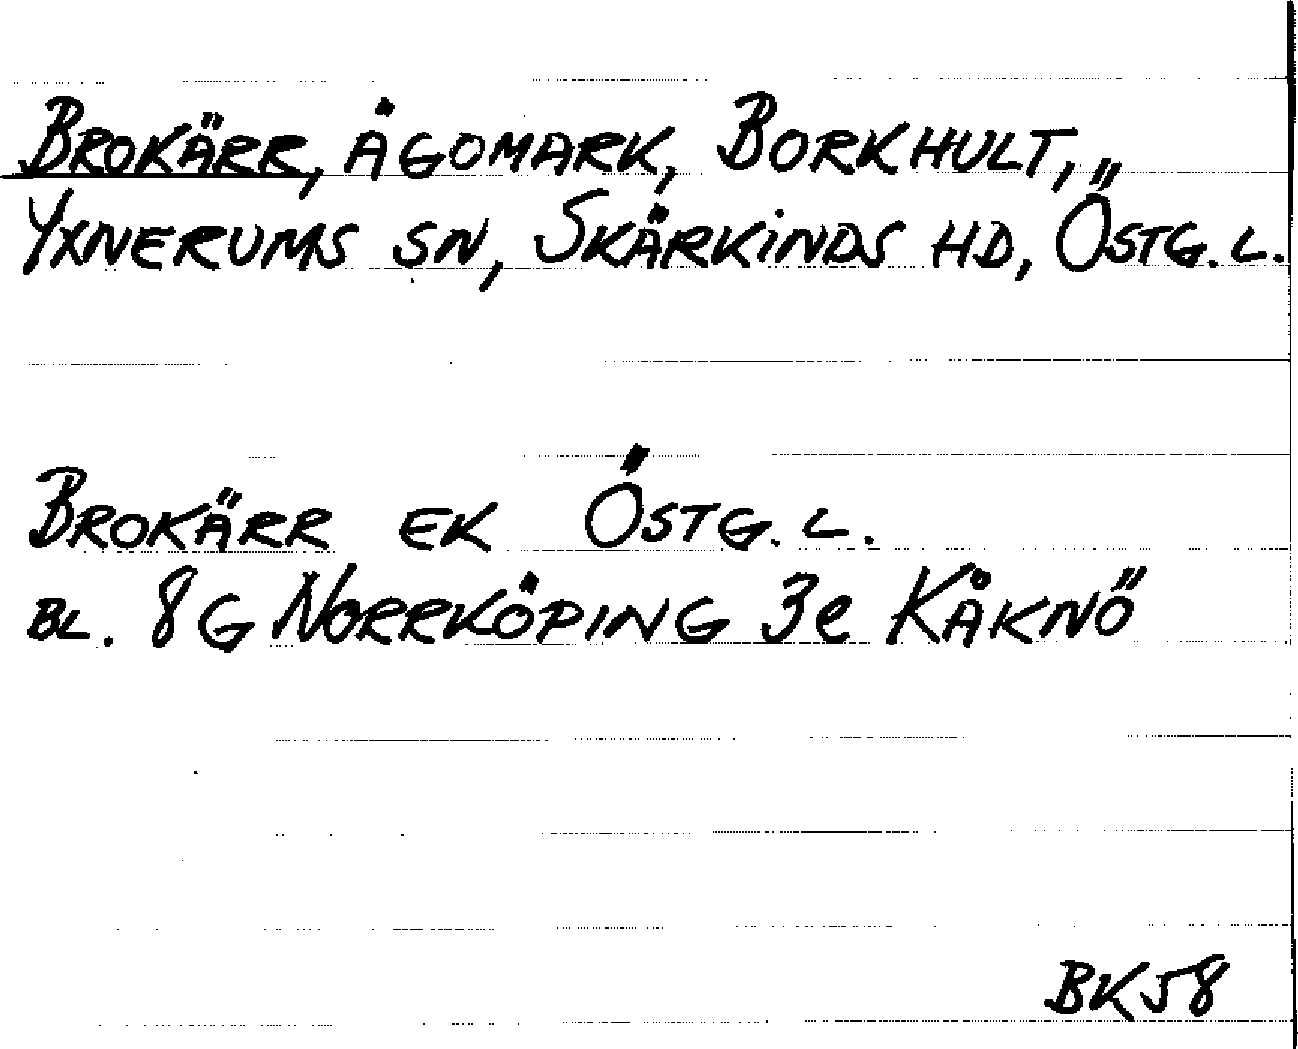 BROKÄRR, ÄGOMARK, BORKHULT,
YXNERUMS SN, SKÄRKINDS HD, ÖSTG. L.
BROKÄRR EK ÖSTG. L.
BL. 8G NORRKÖPING 3e KÅKNÖ
BK58